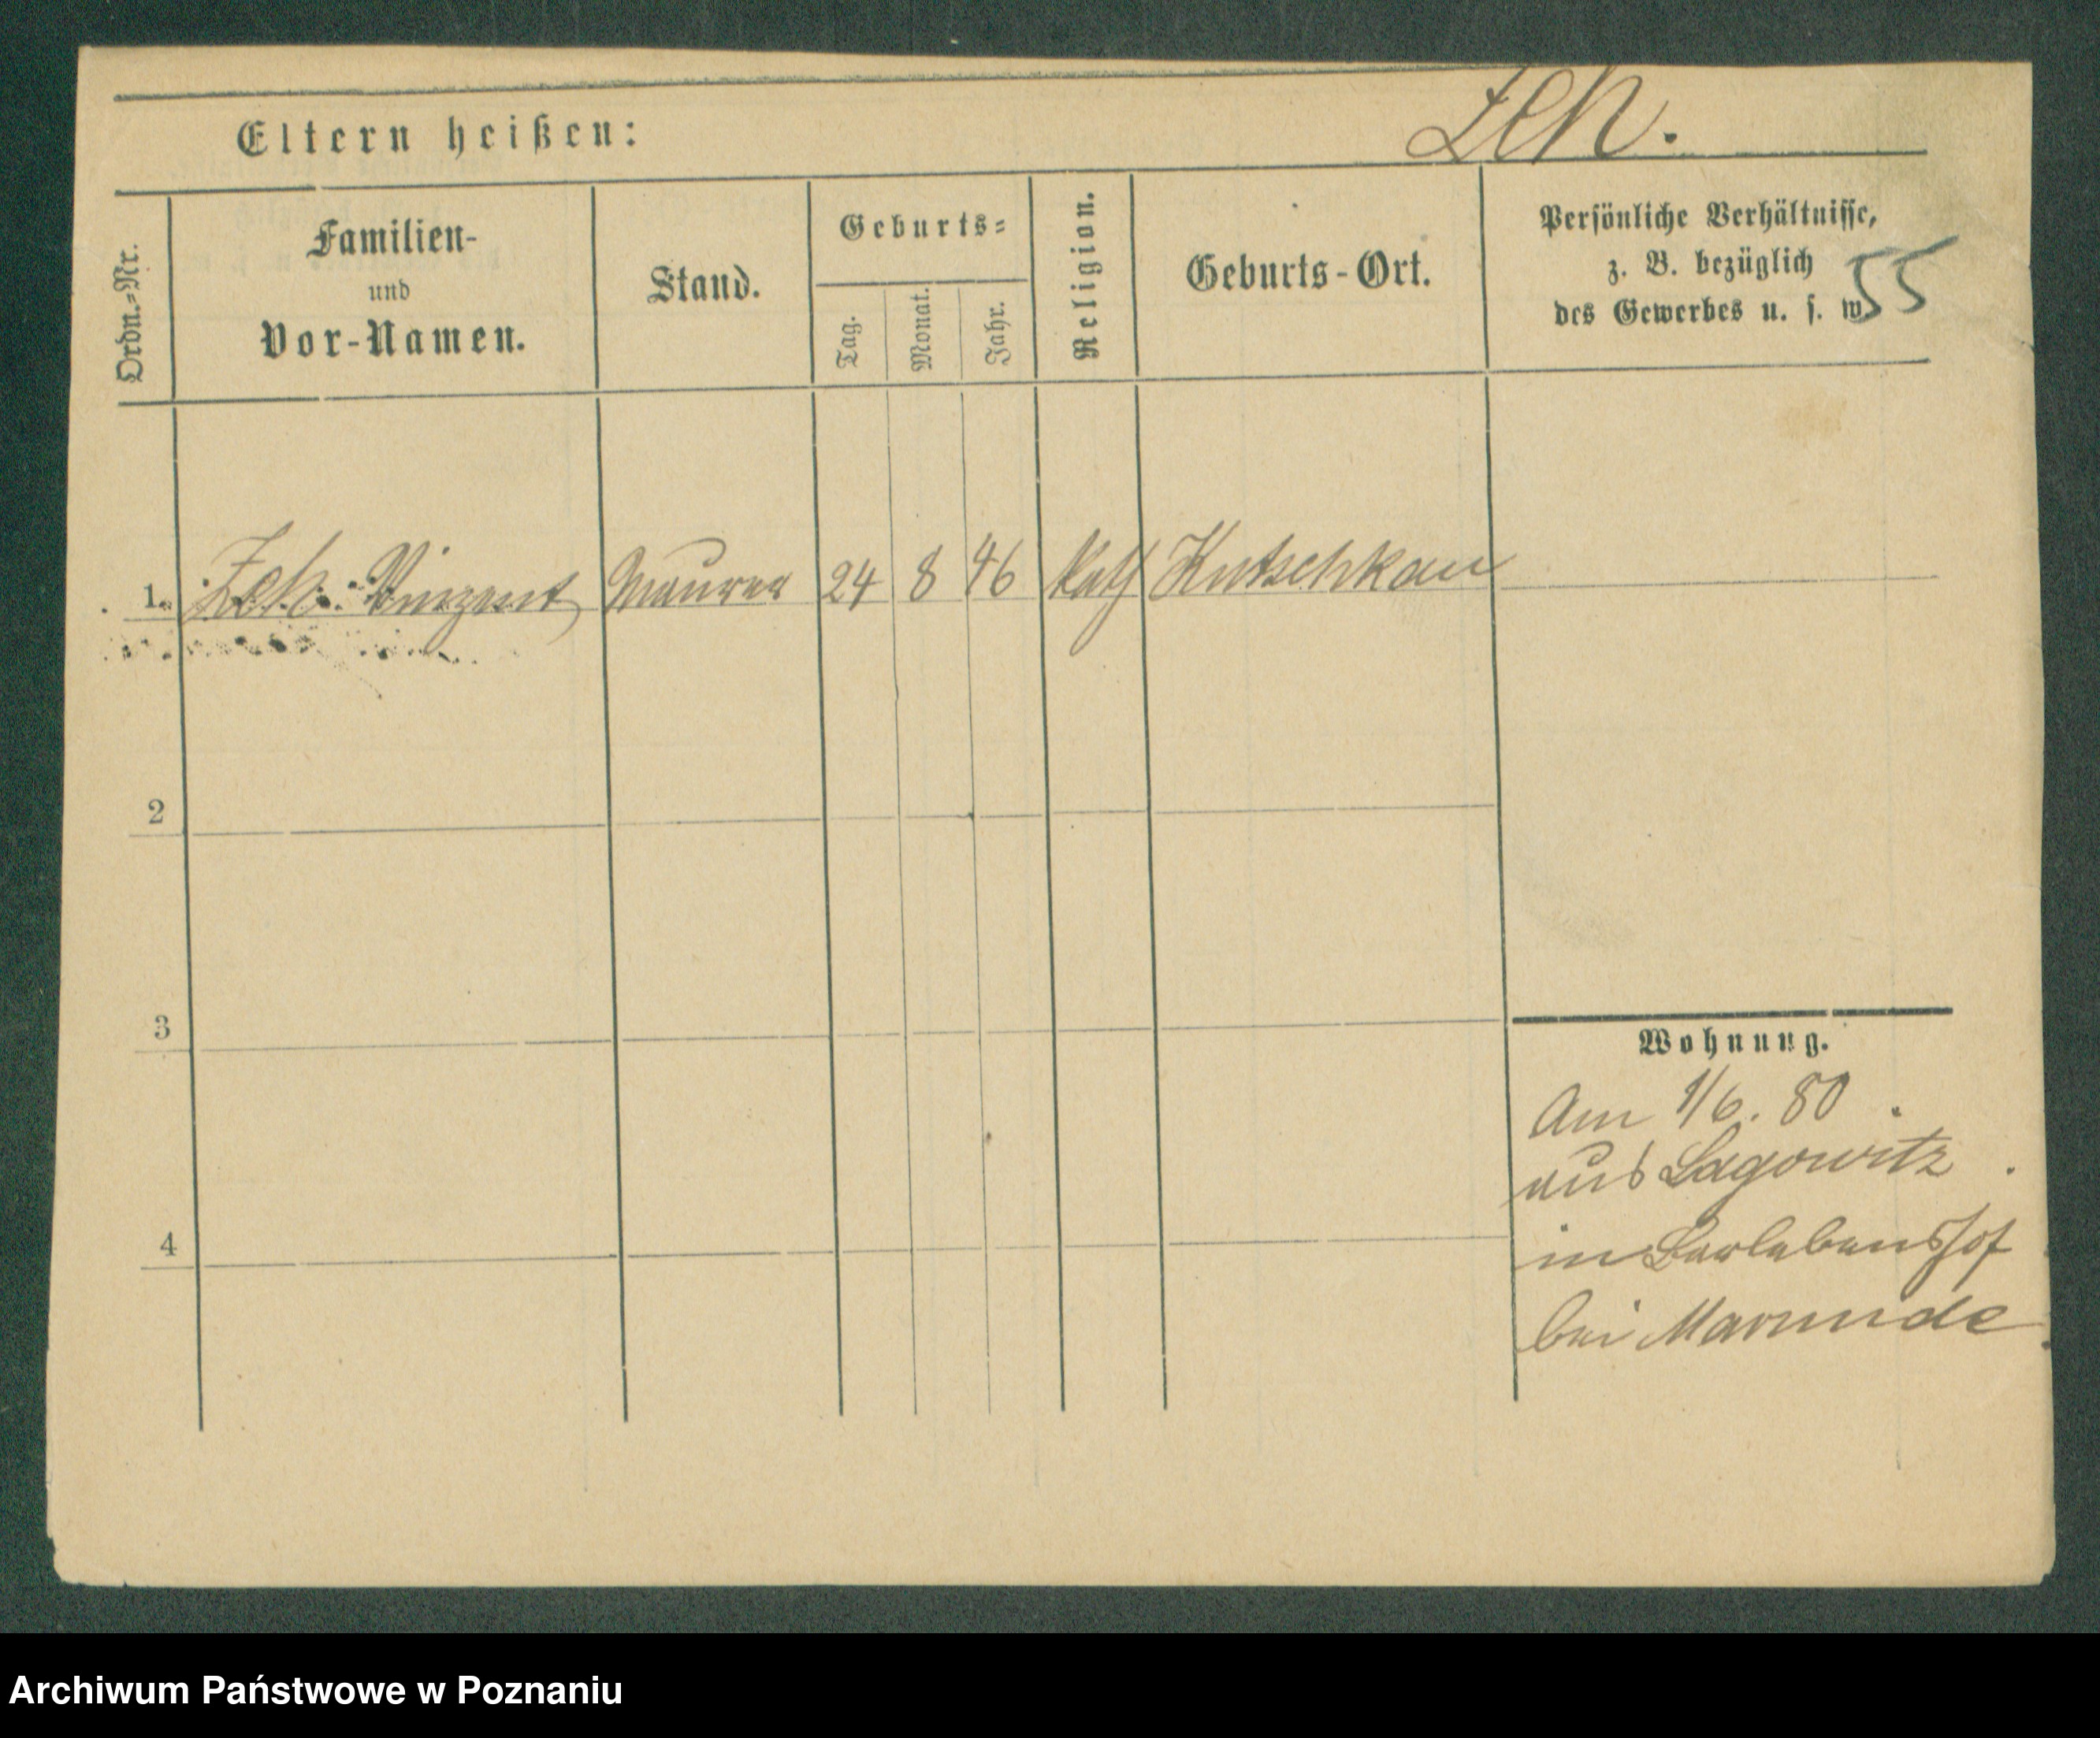 Zeh.
Eltern heißen:
Ordn.=Nr.
Familien-
und
Vor-Namen.
Stand.
Geburts=
Tag.
Monat.
Jahr.
Religion.
Geburts-Ort.
Persönliche Verhältnisse,
z. B. bezüglich
des Gewerbes u. s. w.
55
1. Zeh. Vinzent Maurer 24 8 46 kath Kutschkau
2
3
4
Wohnung.
Am 1/6. 80.
aus Lagowitz
in
bei
Archiwum Państwowe w Poznaniu